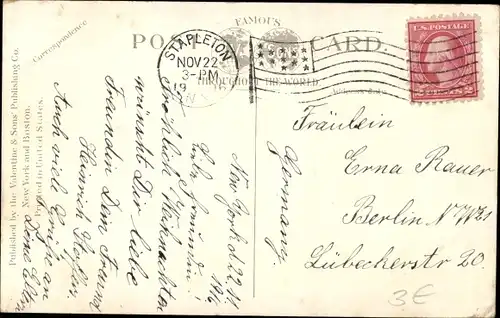 Correspondence
FAMOUS
POST CARD.
THROUGHOUT THE WORLD.
Address Only
STAPLETON
NOV 22
3-PM
19
N.Y.
U.S. POSTAGE
2 CENTS 2
Published by the Valentine & Sons' Publishing Co.
New York and Boston.
Printed in United States.
New York d. 22.11.
Liebe Freundin!
Fröhlich Weihnachten
wünscht Dir liebe
Freundin Dein Freund
Heinrich
Auch viele Grüße an
Deine Eltern
Fräulein
Erna Rauer
Berlin N.W.
Lübeckerstr 20.
Germany.
3€